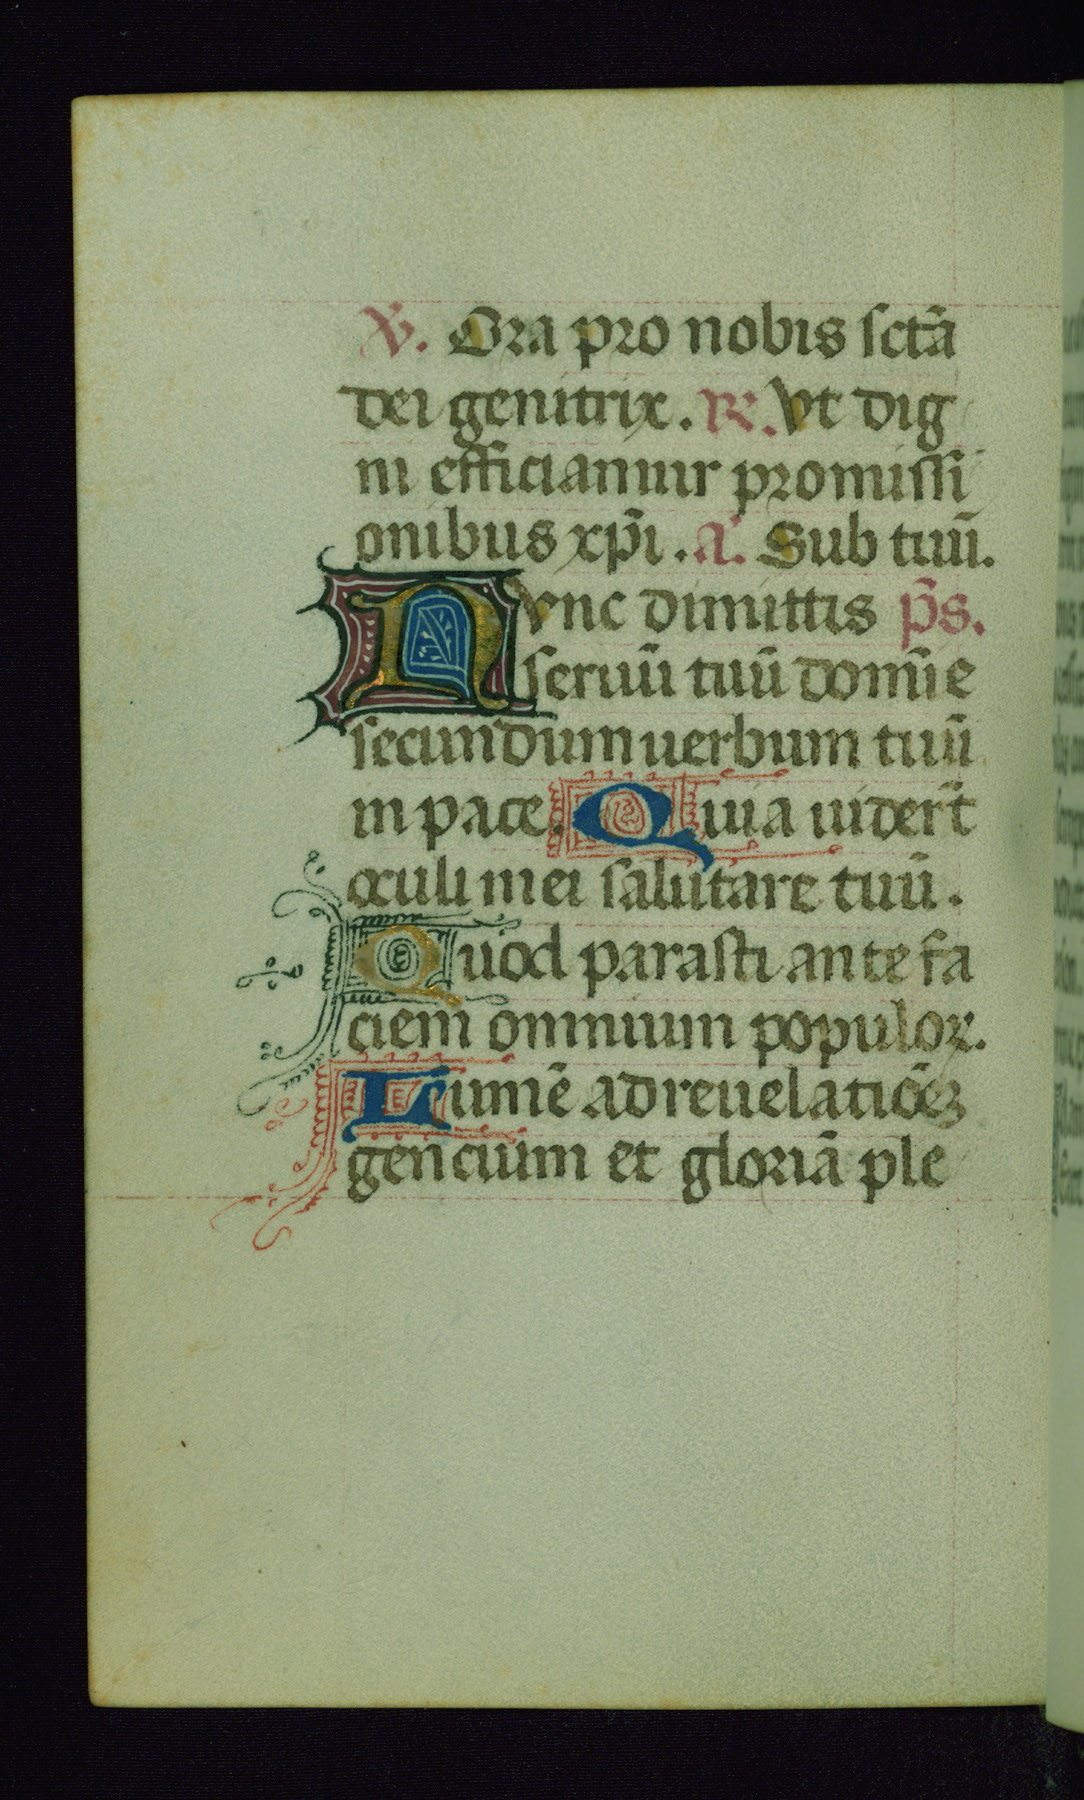 V̄. Ora pro nobis sctā
dei genitrix. R̄. Vt dig
ni efficiamur promissi
onibus xp̄i. a͞. Sub tuū.
Nvnc dimittis p̄s.
seruū tuū domīe
secundum uerbum tuū
in pace. Quia uider̄t
oculi mei salutare tuū.
Quod parasti ante fa
ciem omnium populoꝝ.
Lumē ad reuelationēꝫ
gencium et gloriā ple